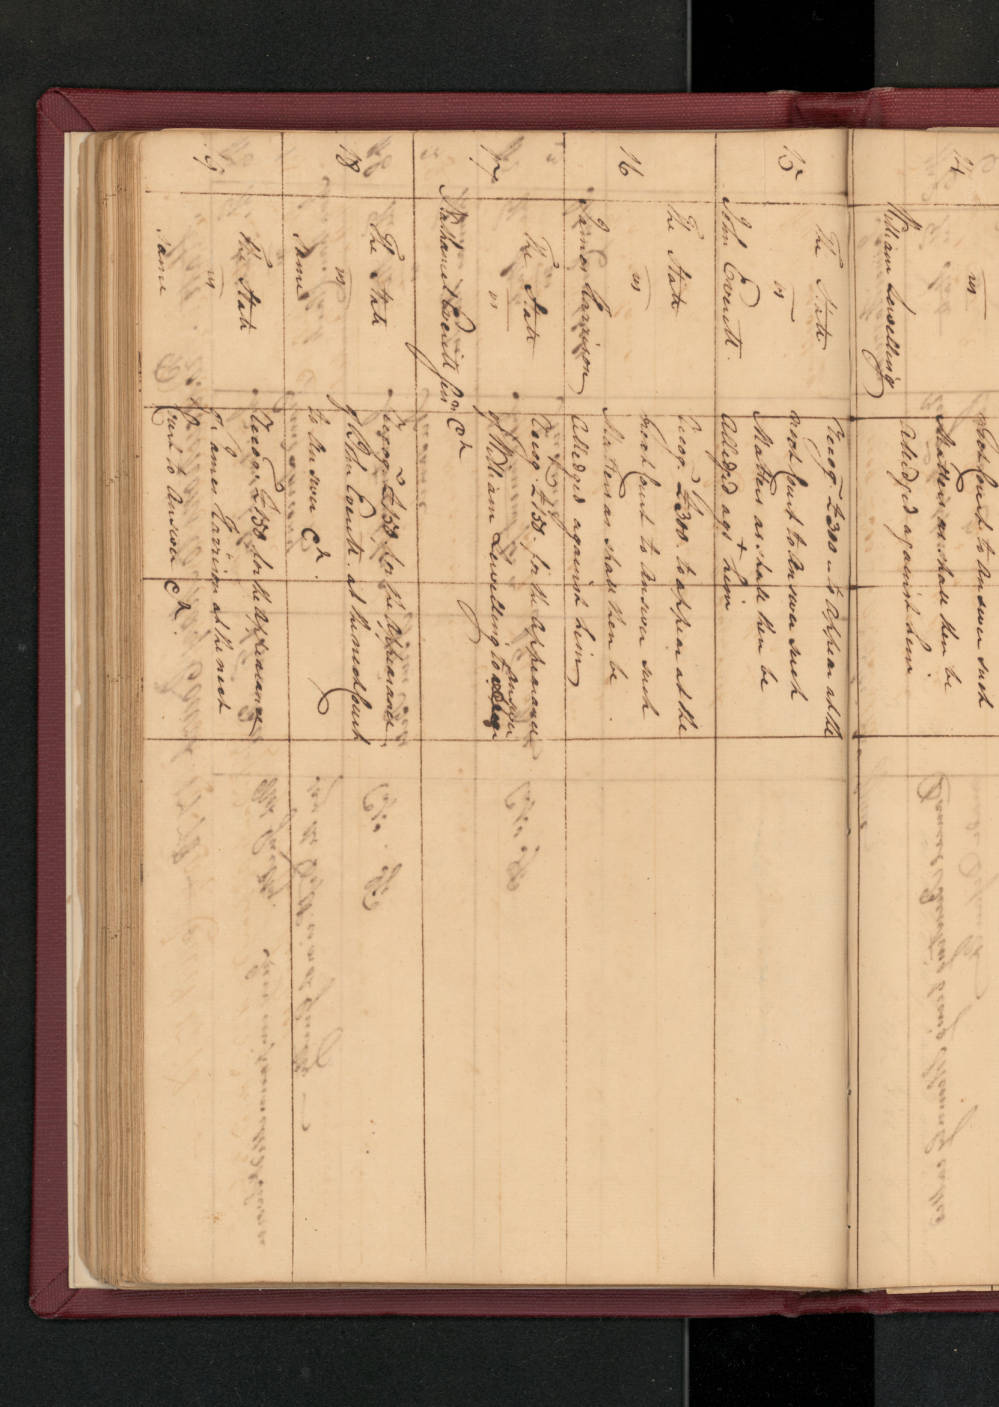 14
vs
William Lewelling
next Court to Answer such
Matters as shall then be
alledged against him
15
The State
vs
John Everett.
Recog. £300. to appear at the
next Court to Answer such
Matters as shall then be
alledged agt him
16
The State
vs
James Garrison
Recog. £300. to appear at the
next Court to Answer such
Matters as shall then be
alledged against him
17
The State
vs
Nathaniel Everitt Senr
Recog. £150. for the appearance
of William Lewelling to answer
Ca
18
The State
vs
Same
Recog. £150 for the Appearance
of John Everitt. at the next Court
to Answer Ca.
19
The State
vs
Same
Recog. £150 for the Appearance
of James Garrison at the next
Court to Answer Ca.